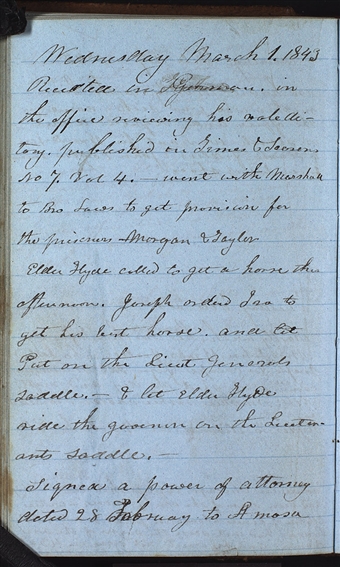 Wednesday March 1. 1843
Recited in German. in
the office reviewing his valedic-
tory. published in Times & Seasons
No 7. Vol 4. — went with Marshall
to Bro Laws to get provision for
the prisoners Morgan & Taylor
Elder Hyde called to get a horse this
afternoon. Joseph orderd Ira to
get his best horse. and let
Put on the Lieut Generals
saddle. — & let Elder Hyde
ride the govenor on the Lieuten-
ants saddle. —
Signed a power of attorney
dated 28 February to Amasa